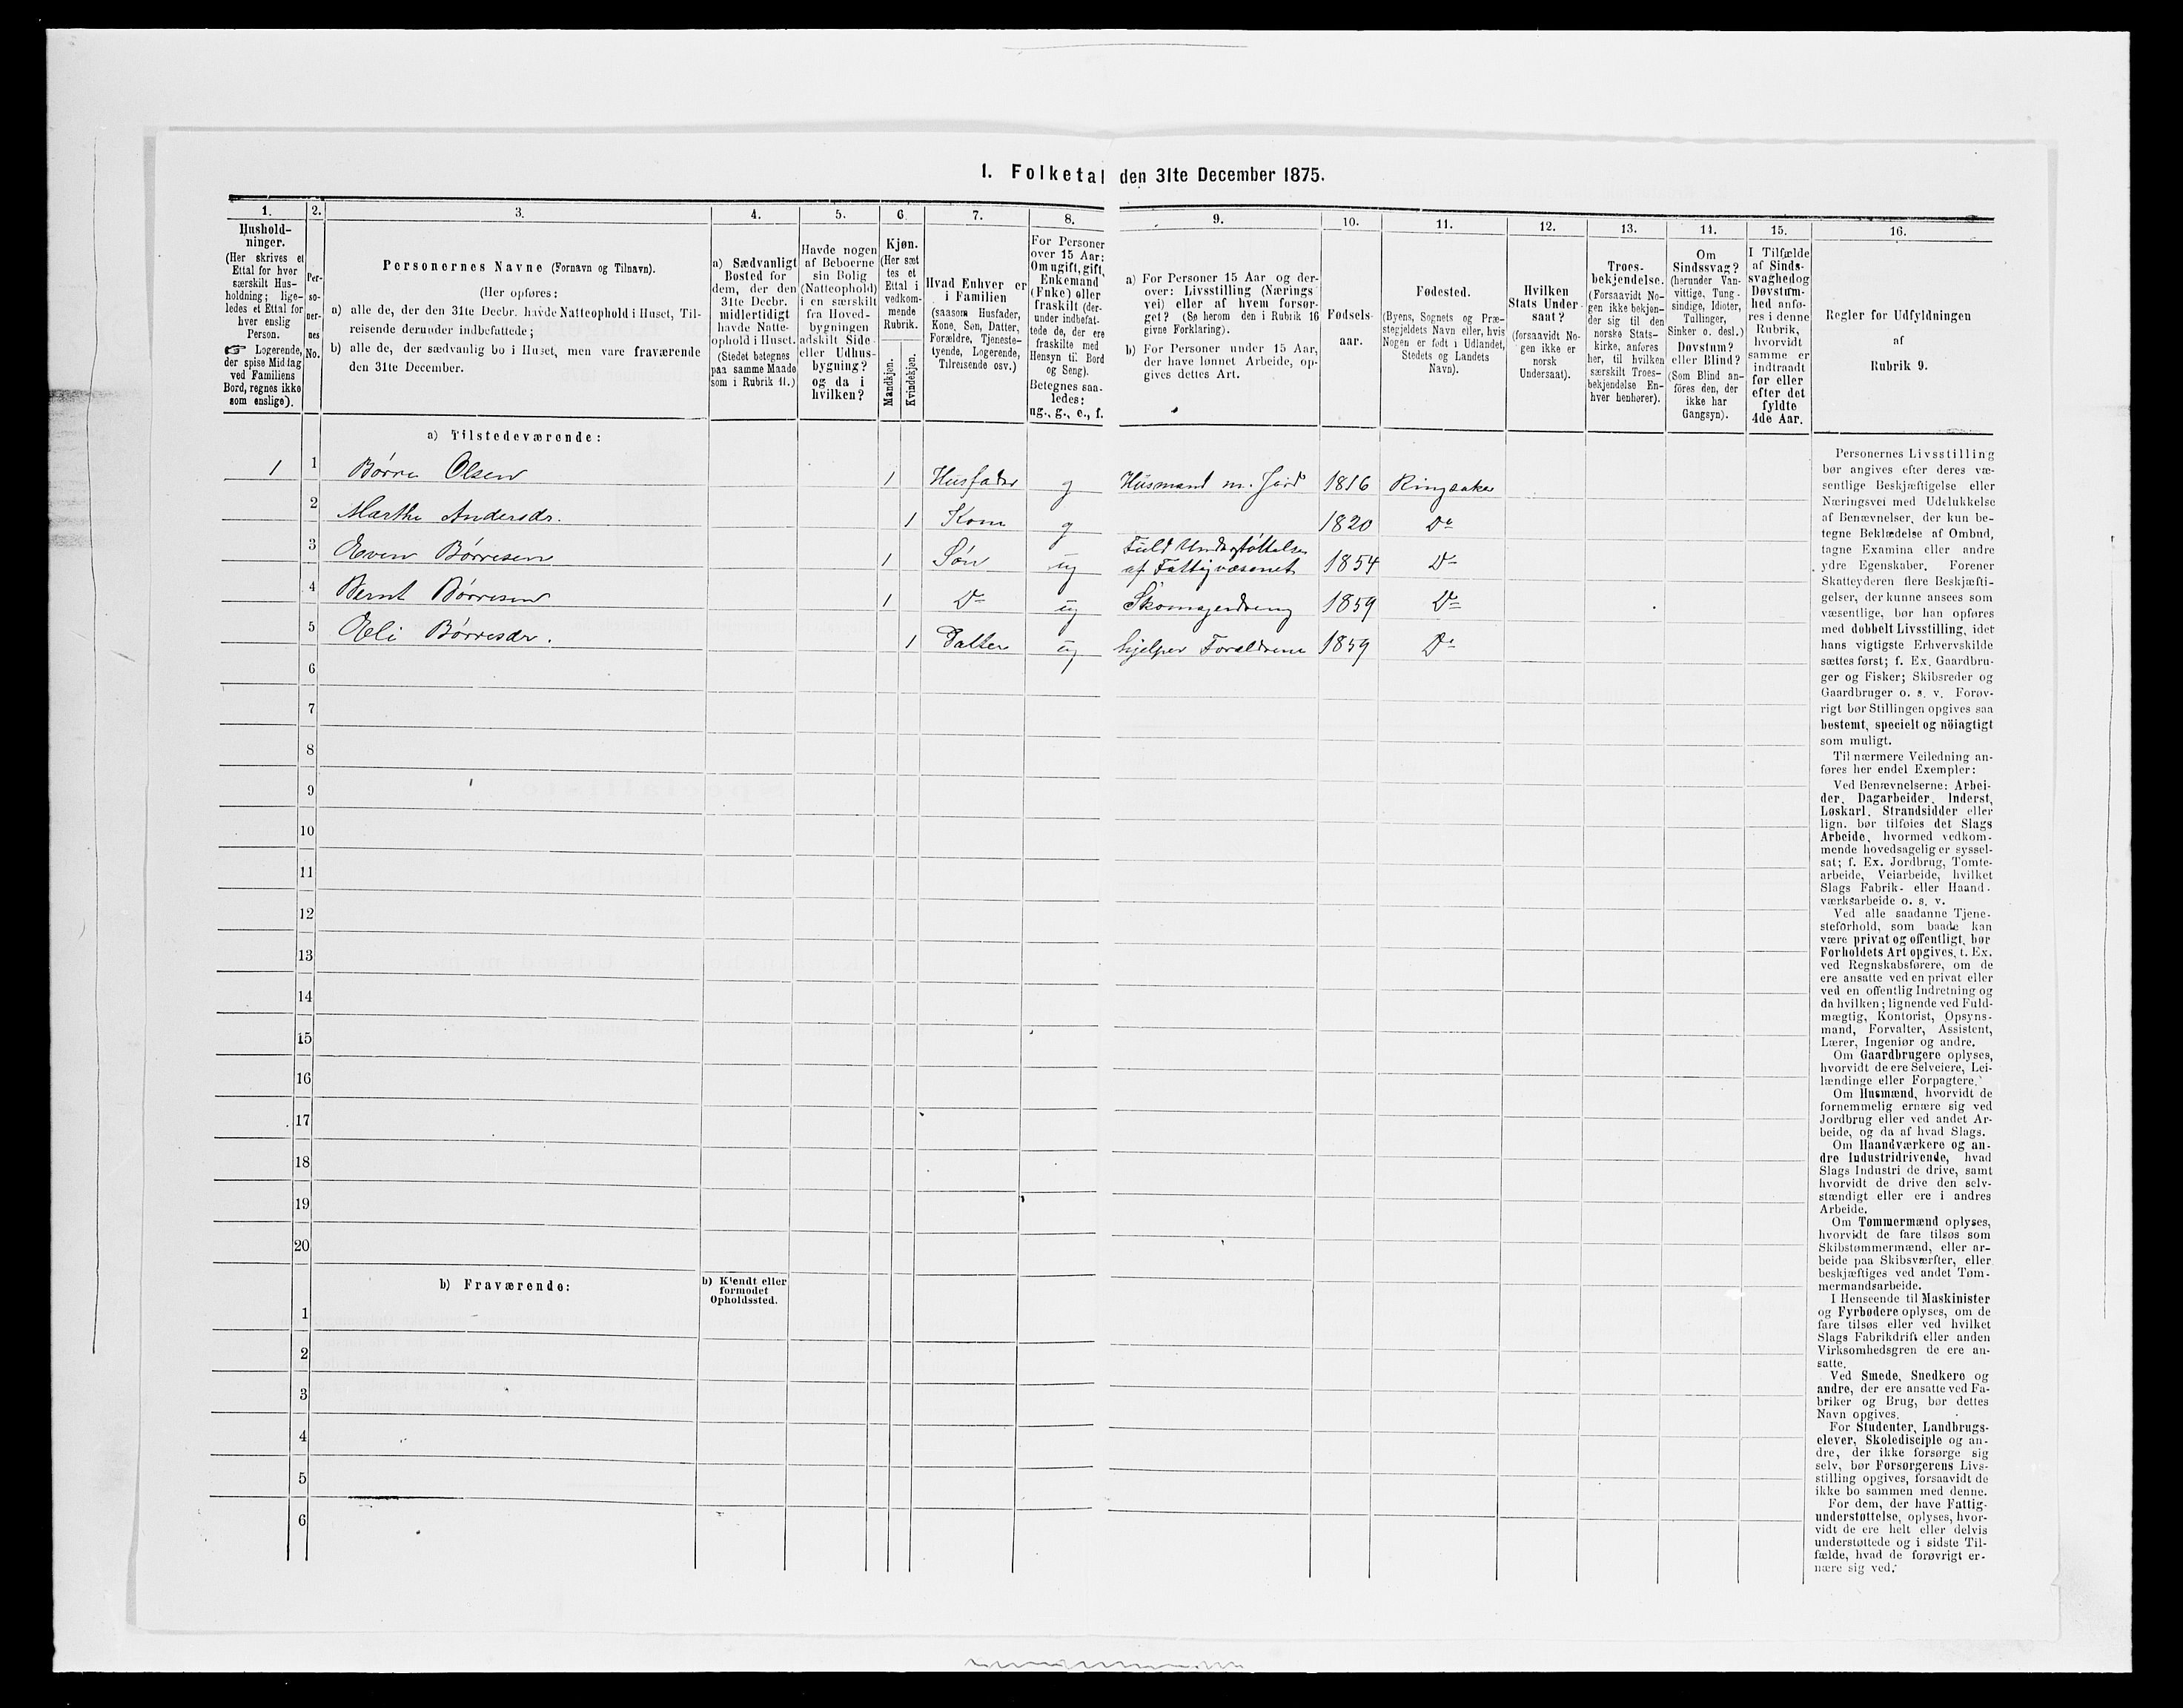 I. Folketal den 31te December 1875.
1.
Hushold-
ninger.
(Her skrives et
Ettal for hver
særskilt Hus-
holdning; lige-
ledes et Ettal for
hver enslig
Person.
☞ Logerende,
der spise Middag
ved Familiens
Bord, regnes ikke
som enslige).
2.
Per-
so-
ner-
nes
No.
3.
Personernes Navne (Fornavn og Tilnavn).
(Her opføres:
a) alle de, der den 31te Decbr. havde Natteophold i Huset, Til-
reisende derunder indbefattede;
b) alle de, der sædvanlig bo i Huset, men vare fraværende
den 31te December.
4.
a) Sædvanligt
Bosted for
dem, der den
31te Decbr.
midlertidigt
havde Natte-
ophold i Huset.
(Stedet betegnes
paa samme Maade
som i Rubrik 11.)
5.
Havde nogen
af Beboerne
sin Bolig
(Natteophold)
i en særskilt
fra Hoved-
bygningen
adskilt Side-
eller Udhus-
bygning?
og da i
hvilken?
6.
Kjøn.
(Her sæt
tes et
Ettal i
vedkom-
mende
Rubrik.
Mandkjøn.
Kvindekjøn.
7.
Hvad Enhver er
i Familien
(saasom Husfader,
Kone, Søn, Datter,
Forældre, Tjeneste-
tyende, Logerende,
Tilreisende osv.)
8.
For Personer
over 15 Aar:
Om ugift, gift,
Enkemand
(Enke) eller
fraskilt (der-
under indbefat-
tede de, der ere
fraskilte med
Hensyn til Bord
og Seng).
Betegnes saa-
ledes:
ug., g., e., f.
9.
a) For Personer 15 Aar og der-
over: Livsstilling (Nærings-
vei) eller af hvem forsør-
get? (Se herom den i Rubrik 16
givne Forklaring).
b) For Personer under 15 Aar,
der have lønnet Arbeide, op-
gives dettes Art.
10.
Fødsels-
aar.
11.
Fødested.
(Byens, Sognets og Præ-
stegjeldets Navn eller, hvis
Nogen er født i Udlandet,
Stedets og Landets
Navn).
12.
Hvilken
Stats Under-
saat?
(forsaavidt No-
gen ikke er
norsk
Undersaat).
13.
Troes-
bekjendelse.
(Forsaavidt No-
gen ikke bekjen-
der sig til den
norske Stats-
kirke, anføres
her, til hvilken
særskilt Troes-
bekjendelse En-
hver henhører).
14.
Om
Sindssvag?
(herunder Van-
vittige, Tung-
sindige, Idioter,
Tullinger,
Sinker o. desl.)
Døvstum?
eller Blind?
(Som Blind an-
føres den, der
ikke har
Gangsyn).
15.
I Tilfælde
af Sinds-
svaghed og
Døvstum-
hed anfø-
res i denne
Rubrik,
hvorvidt
samme er
indtraadt
før eller
efter det
fyldte
4de Aar.
16.
Regler for Udfyldningen
af
Rubrik 9.
a) Tilstedeværende:
1 1 Børre Olsen 1 Husfader g Husmand m. Jord 1816 Ringsaker
2 Marthe Andersdr. 1 Kone g 1820 Do
3 Even Børresen 1 Søn ug Fuld Understøttelse
af Fattigvæsenet 1854 Do
4 Bernt Børresen 1 Do ug Skomagerdreng 1859 Do
5 Eli Børresdr. 1 Datter ug hjelper Forældrene 1859 Do
6
7
8
9
10
11
12
13
14
15
16
17
18
19
20
b) Fraværende:
b) Kjendt eller
formodet
Opholdssted.
1
2
3
4
5
6
Personernes Livsstilling
bør angives efter deres væ-
sentlige Beskjæftigelse eller
Næringsvei med Udelukkelse
af Benævnelser, der kun be-
tegne Beklædelse af Ombud,
tagne Examina eller andre
ydre Egenskaber. Forener
Skatteyderen flere Beskjæfti-
gelser, der kunne ansees som
væsentlige, bør han opføres
med dobbelt Livsstilling, idet
hans vigtigste Erhvervskilde
sættes først; f. Ex. Gaardbru-
ger og Fisker; Skibsreder og
Gaardbruger o. s. v. Forøv-
rigt bør Stillingen opgives saa
bestemt, specielt og nöiagtigt
som muligt.
Til nærmere Veiledning an-
føres her endel Exempler:
Ved Benævnelserne: Arbei-
der, Dagarbeider, Inderst,
Løskarl, Strandsidder eller
lign. bør tilføies det Slags
Arbeide, hvormed vedkom-
mende hovedsagelig er syssel-
sat; f. Ex. Jordbrug, Tomte-
arbeide, Veiarbeide, hvilket
Slags Fabrik- eller Haand-
værksarbeide o. s. v.
Ved alle saadanne Tjene-
steforhold, som baade kan
være privat og offentligt, bør
Forholdets Art opgives, t. Ex.
ved Regnskabsførere, om de
ere ansatte ved en privat eller
ved en offentlig Indretning og
da hvilken; lignende ved Fuld-
mægtig, Kontorist, Opsyns-
mand, Forvalter, Assistent,
Lærer, Ingeniør og andre.
Om Gaardbrugere oplyses,
hvorvidt de ere Selveiere, Lei-
lændinge eller Forpagtere.
Om Husmænd, hvorvidt de
fornemmelig ernære sig ved
Jordbrug eller ved andet Ar-
beide, og da af hvad Slags.
Om Haandværkere og an-
dre Industridrivende, hvad
Slags Industri de drive, samt
hvorvidt de drive den selv-
stændigt eller ere i andres
Arbeide.
Om Tømmermænd oplyses,
hvorvidt de fare tilsøs som
Skibstømmermænd, eller ar-
beide paa Skibsværfter, eller
beskjæftiges ved andet Tøm-
mermandsarbeide.
I Henseende til Maskinister
og Fyrbødere oplyses, om de
fare tilsøs eller ved hvilket
Slags Fabrikdrift eller anden
Virksomhedsgren de ere an-
satte.
Ved Smede, Snedkere og
andre, der ere ansatte ved Fa-
briker og Brug, bør dettes
Navn opgives.
For Studenter, Landbrugs-
elever, Skoledisciple og an-
dre, der ikke forsørge sig
selv, bør Forsørgerens Livs-
stilling opgives, forsaavidt de
ikke bo sammen med denne.
For dem, der have Fattig-
understøttelse, oplyses, hvor-
vidt de ere helt eller delvis
understøttede og i sidste Til-
fælde, hvad de forøvrigt er-
nære sig ved.